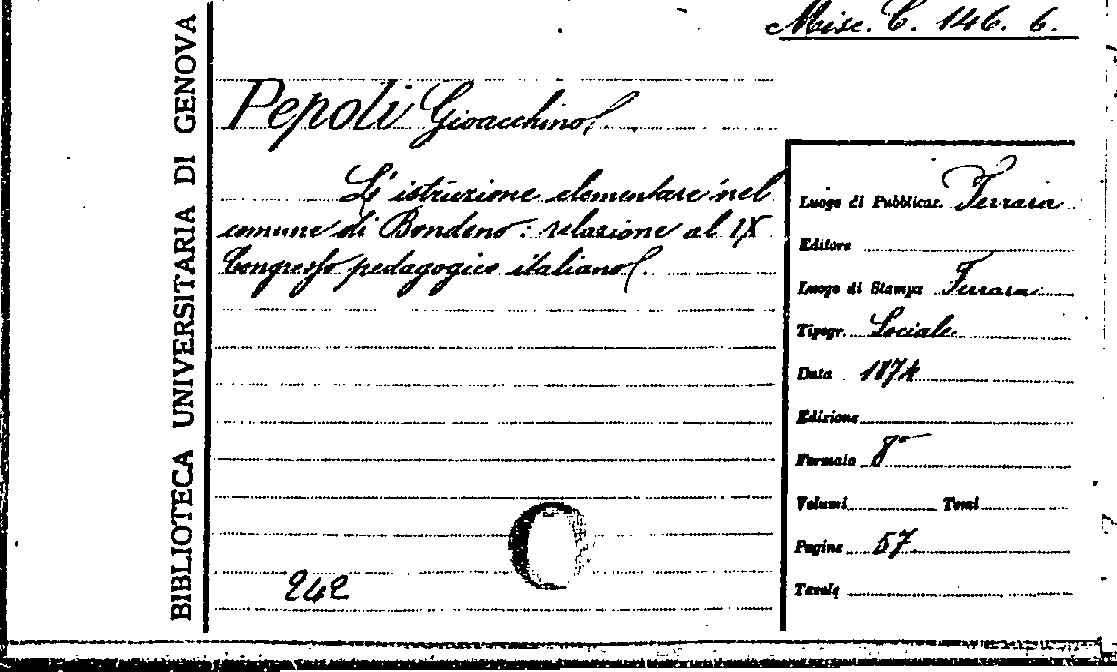 Misc. C. 146. 6.
BIBLIOTECA UNIVERSITARIA DI GENOVA
Pepoli Gioacchino
L'istruzione elementare nel
comune di Bondeno: relazione al IX
Congresso pedagogico italiano
242
Luogo di Pubblicaz. Ferrara
Editore
Luogo di Stampa Ferrara
Tipogr. Sociale
Data 1874
Edizione
Formato 8°
Volumi Tomi
Pagine 57
Tavole